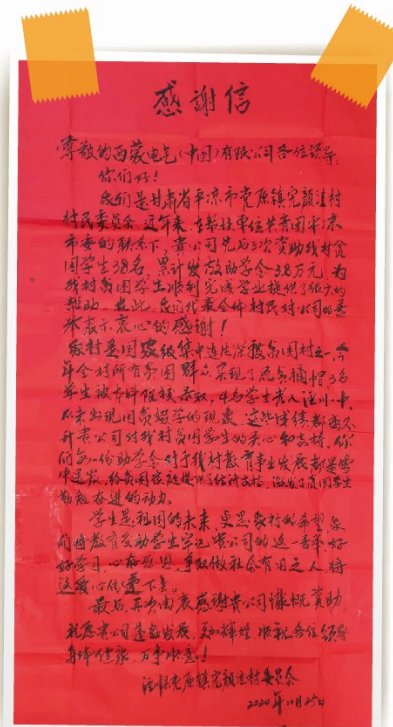 感謝信
尊敬的西蒙电气(中国)有限公司各位领导:
你们好!
我们是甘肃省平凉市党原镇完颜洼村
村民委员会,近年来,在帮扶单位共青团平凉
市委的联系下,贵公司先后3次资助我村贫
困学生38名,累计发放助学金3.8万元,为
我村贫困学生顺利完成学业提供了很大的
帮助。在此,我代表全体村民对公司的善
举表示衷心的感谢!
我村是国家级集中连片深度贫困村之一,今
年全村所有贫困群众实现了脱贫摘帽,3名
学生被本科院校录取,4名学生考入泾川一中,
从未出现因贫辍学的现象,这些成绩都离不
开贵公司对我村贫困学生的关心和支持,你
们每一份助学金对于我村教育事业发展都是雪
中送炭,给贫困家庭提供了经济支持,激发了贫困学生
勤勉奋进的动力。
学生是祖国的未来,更是我村的希望,我
们将教育受助学生牢记贵公司的这一善举,好
好学习,心存感恩,争取做社会有用之人,将
这爱心传递下去。
最后,再次由衷感谢贵公司慷慨资助,
祝愿贵公司蓬勃发展,更加辉煌,顺祝各位领导
身体健康,万事如意!
泾川县党原镇完颜洼村委员会
2020年11月25日